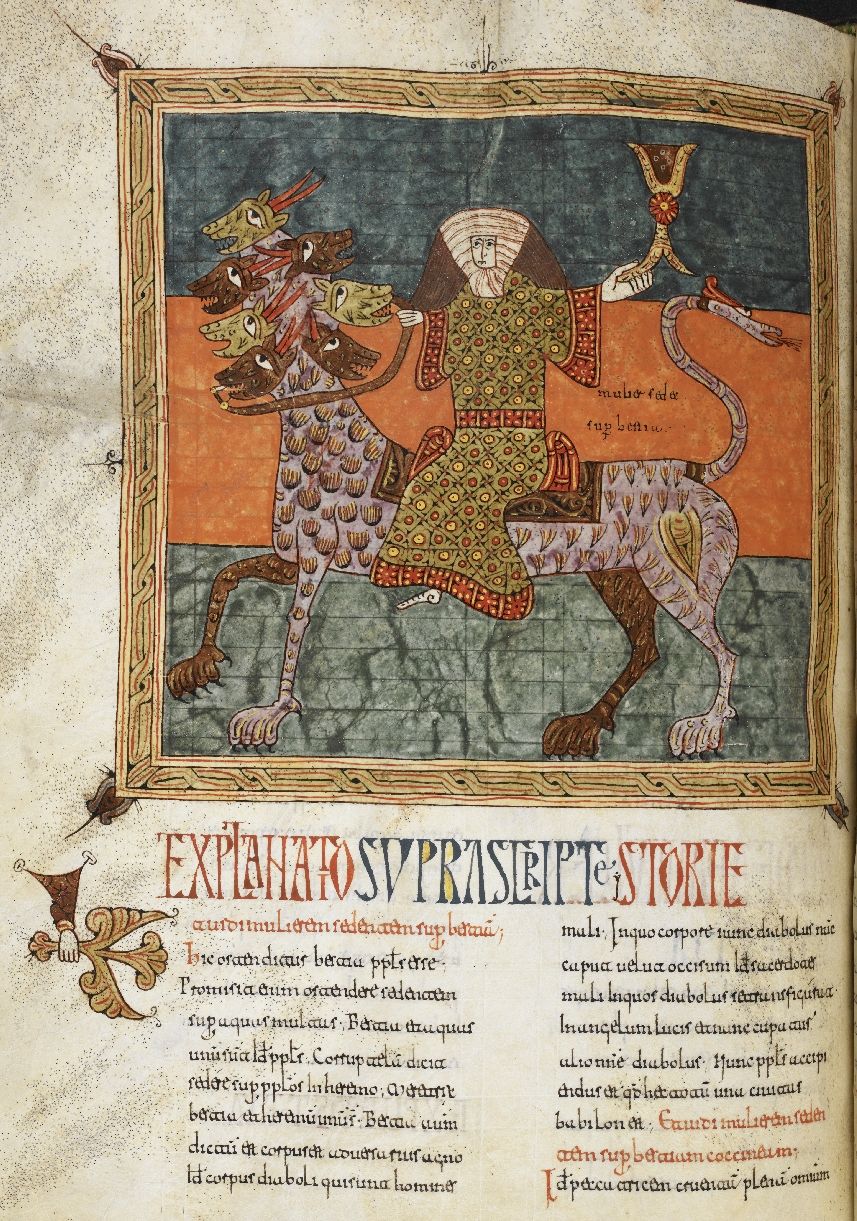 mulier sedet
sup bestia
EXPLANATIO SUPRASCRIPTE ISTORIE
Et uidi mulierem sedentem sup bestiā;
hic ostenditur bestia ppls esse.
Promisit enim ostendere sedentem
sup aquas multas. Bestia et aquas
unū sūt id ppls. Corruptelā dicit
sedere sup pplos In heremo; Meretrix
bestia et heremū unū s̄. Bestia autm
dictū est corpus est aduersarius agno
Id corpus diaboli qui sunt homines
mali. In quo corpore nunc diabolus
caput ueluti occisum Id sacerdotes
mali In quos diabolus se transfigurat
In angelum lucis et nunc caput aut
alio nme diabolus. Hunc ppls accipi
endus est qd hec totū una ciuitas
babilon est; Et uidi mulierem seden
tem sup bestiam coccineam;
Id peccatricem cruentā plenā omium